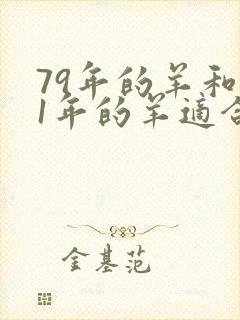 79年的羊和
1年的羊適合
金基范